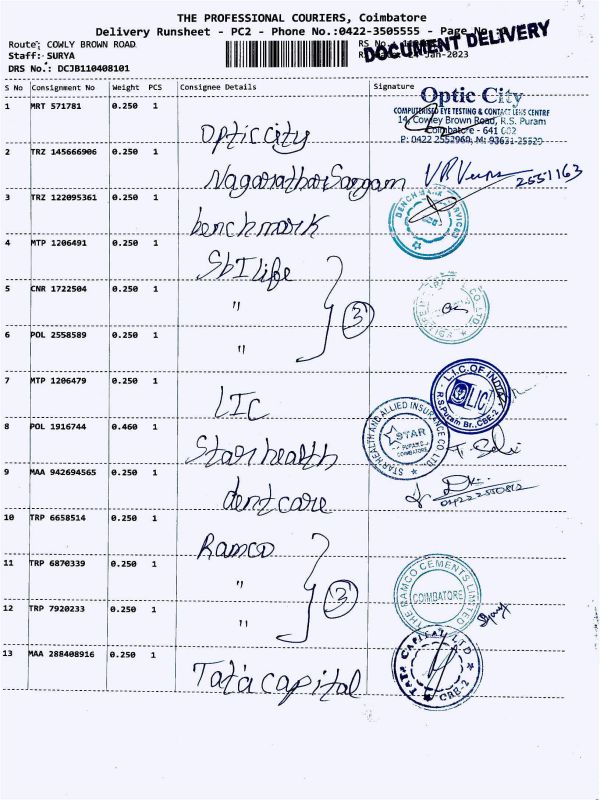 THE PROFESSIONAL COURIERS, Coimbatore
Delivery Runsheet - PC2 - Phone No.:0422-3505555 - Page No.:
DOCUMENT DELIVERY
Route: COWLY BROWN ROAD
Staff: SURYA
DRS No.: DCJB110408101
S No Consignment No Weight PCS Consignee Details Signature
1 MRT 571781 0.250 1 Optic city
Optic City
COMPUTERISED EYE TESTING & CONTACT LENS CENTRE
14, Cowley Brown Road, R.S. Puram
Coimbatore - 641 002
P: 0422 2552960, M: 93631-25520
2 TRZ 145666906 0.250 1 Nagarathar Sangam
2551163
3 TRZ 122095361 0.250 1 benchmark
4 MTP 1206491 0.250 1 SbI life
5 CNR 1722504 0.250 1 " 3
6 POL 2558589 0.250 1 "
7 MTP 1206479 0.250 1 LIC
L.I.C. OF INDIA
LIC
R.S.Puram Br., CBE-2
8 POL 1916744 0.460 1 Star health
STAR HEALTH AND ALLIED INSURANCE CO LTD
STAR
COIMBATORE
9 MAA 942694565 0.250 1 dent care
10 TRP 6658514 0.250 1 Ramco
11 TRP 6870339 0.250 1 " 3
THE RAMCO CEMENTS LIMITED
COIMBATORE
12 TRP 7920233 0.250 1 "
13 MAA 288408916 0.250 1 Tata capital
TATA CAPITAL LTD
CBE-2